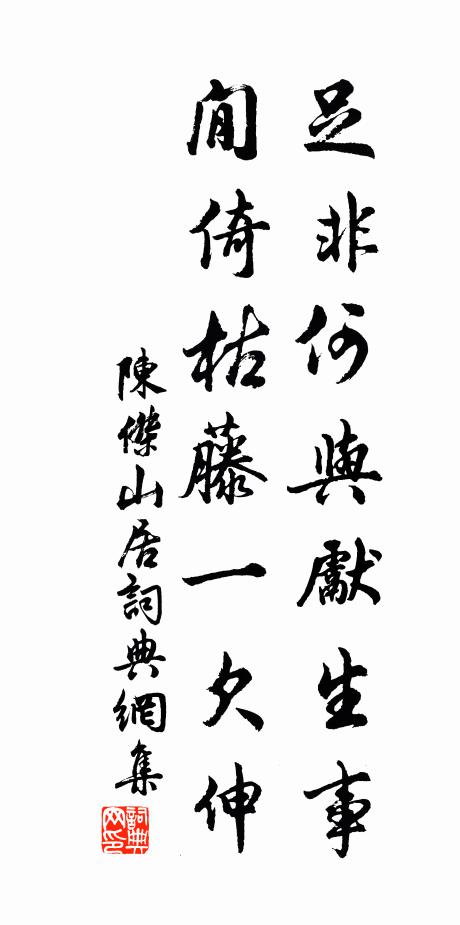 是非何與獻生事
閒倚枯藤一欠伸
陳傑山居詞典網集
詞典網印